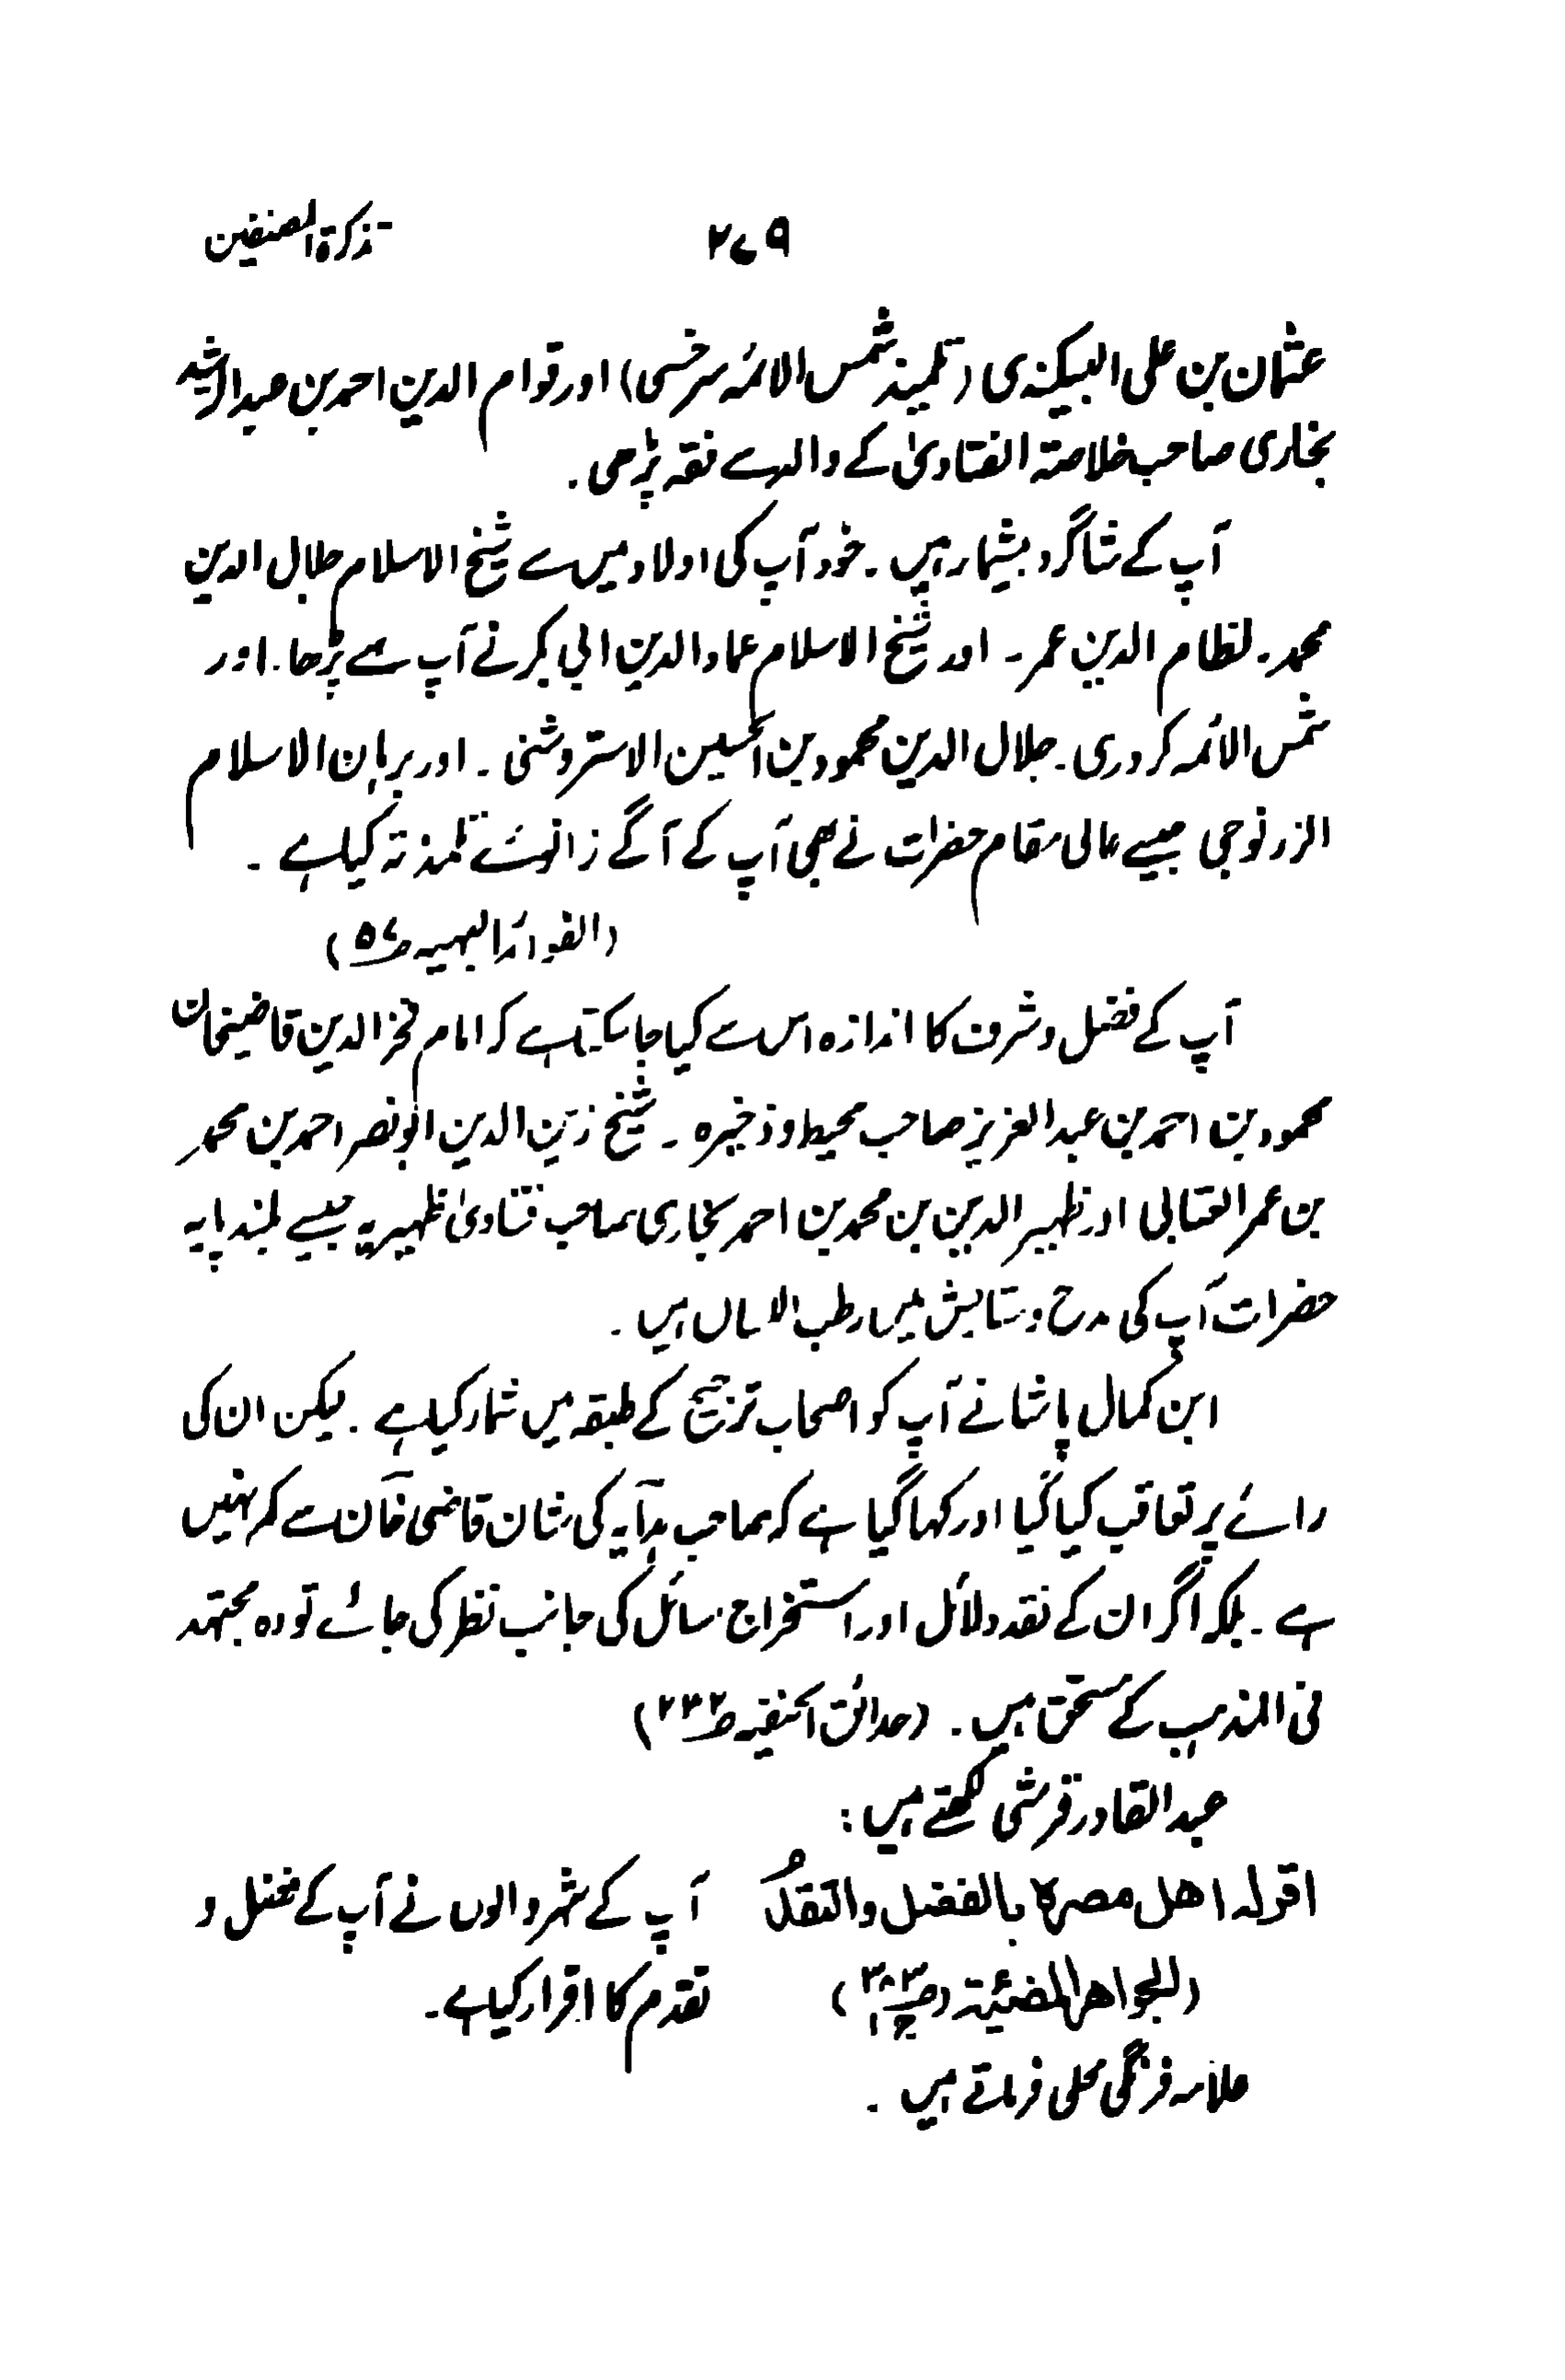 تذکرۃ المصنفین ۲۷۹
عثمان بن علی البیکندی (تلمیذ شمس الائمہ سرخسی) اور قوام الدین احمد بن عبدالرشید
بخاری صاحب خلاصۃ الفتاویٰ کے والد سے فقہ پڑھی ۔
آپ کے شاگرد بیشمار ہیں ۔ خود آپ کی اولاد میں سے شیخ الاسلام جلال الدین
محمد ۔ نظام الدین عمر ۔ اور شیخ الاسلام عماد الدین ابی بکر نے آپ سے پڑھا ۔ اور
شمس الائمہ کردری ۔ جلال الدین محمود بن الحسین الاستروشنی ۔ اور برہان الاسلام
الزرنوجی جیسے عالی مقام حضرات نے بھی آپ کے آگے زانوئے تلمذ تہ کیا ہے ۔
(الفوائد البہیہ ص۵۷)
آپ کے فضل و شرف کا اندازہ اس سے کیا جا سکتا ہے کہ امام فخر الدین قاضیخان
محمود بن احمد بن عبدالعزیز صاحب محیط و ذخیرہ ۔ شیخ زین الدین ابو نصر احمد بن محمد
بن عمر العتابی اور ظہیر الدین بن محمد بن احمد بخاری صاحب فتاویٰ ظہیریہ جیسے بلند پایہ
حضرات آپ کی مدح و ستایش میں رطب اللساں ہیں ۔
ابن کمال پاشا نے آپ کو اصحاب ترجیح کے طبقہ میں شمار کیا ہے ۔ لیکن ان کی
رائے پر تعاقب کیا گیا اور کہا گیا ہے کہ صاحب ہدایہ کی شان قاضی خان سے کم نہیں
ہے ۔ بلکہ اگر ان کے نقد دلائل اور استخراج مسائل کی جانب نظر کی جائے تو وہ مجتہد
فی المذہب کے مستحق ہیں ۔ (حدائق الحنفیہ ص۲۳۲)
عبدالقادر قرشی لکھتے ہیں :
اقر لہ اھل مصرہ بالفضل والتقدُم
(الجواھر المضئیۃ (ص۳۸۳ ج۱)
آپ کے شہر والوں نے آپ کے فضل و
تقدم کا اقرار کیا ہے ۔
علامہ فرنگی محلی فرماتے ہیں ۔